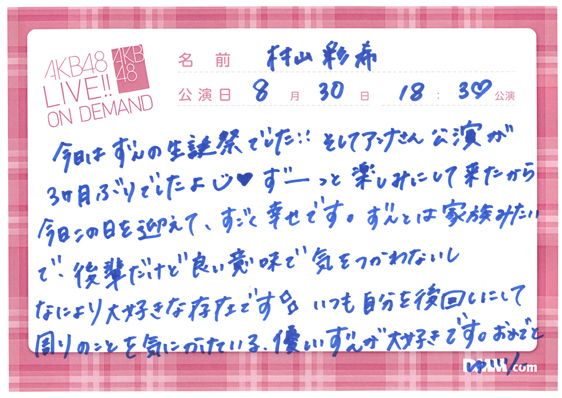 AKB48
LIVE!!
ON DEMAND
AKB
48
名前 村山彩希
公演日 8月30日 18:30公演
今日はずんの生誕祭でした!! そしてアンナさん公演が
3ヶ月ぶりでしたよ♥ ずーっと楽しみにして来たから
今日この日を迎えて、すごく幸せです。ずんとは家族みたい
で、後輩だけど良い意味で気をつかわないし
なにより大好きな存在です いつも自分を後回しにして
周りのことを気にかけている、優しいずんが大好きです。おめでと
DMM.com